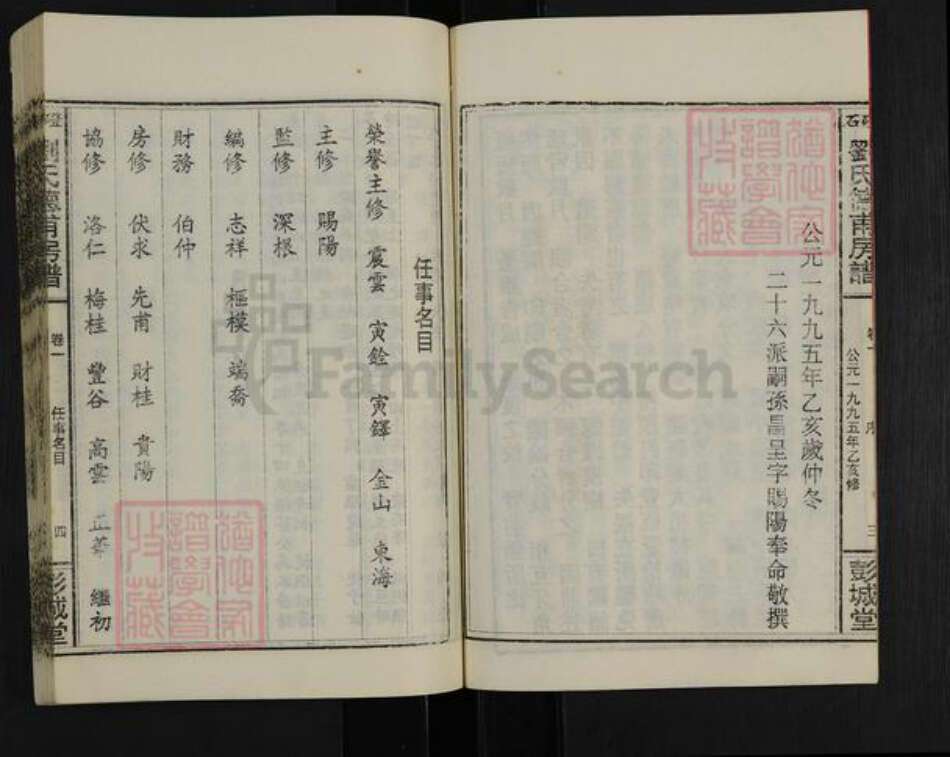 劉氏德甫房譜
卷一
序
公元一九九五年乙亥修
三
彭城堂
公元一九九五年乙亥歲仲冬
二十六派嗣孫昌呈字賜陽奉命敬撰
任事名目
榮譽主修 震雲 寅銓 寅鐸 金山 東海
主修 賜陽
監修 深根
編修 志祥 樞模 端喬
財務 伯仲
房修 伏求 先甫 財桂 貴陽
協修 洛仁 梅桂 豐谷 高雲 正華 繼初
劉氏德甫房譜
卷一
任事名目
四
彭城堂
FamilySearch